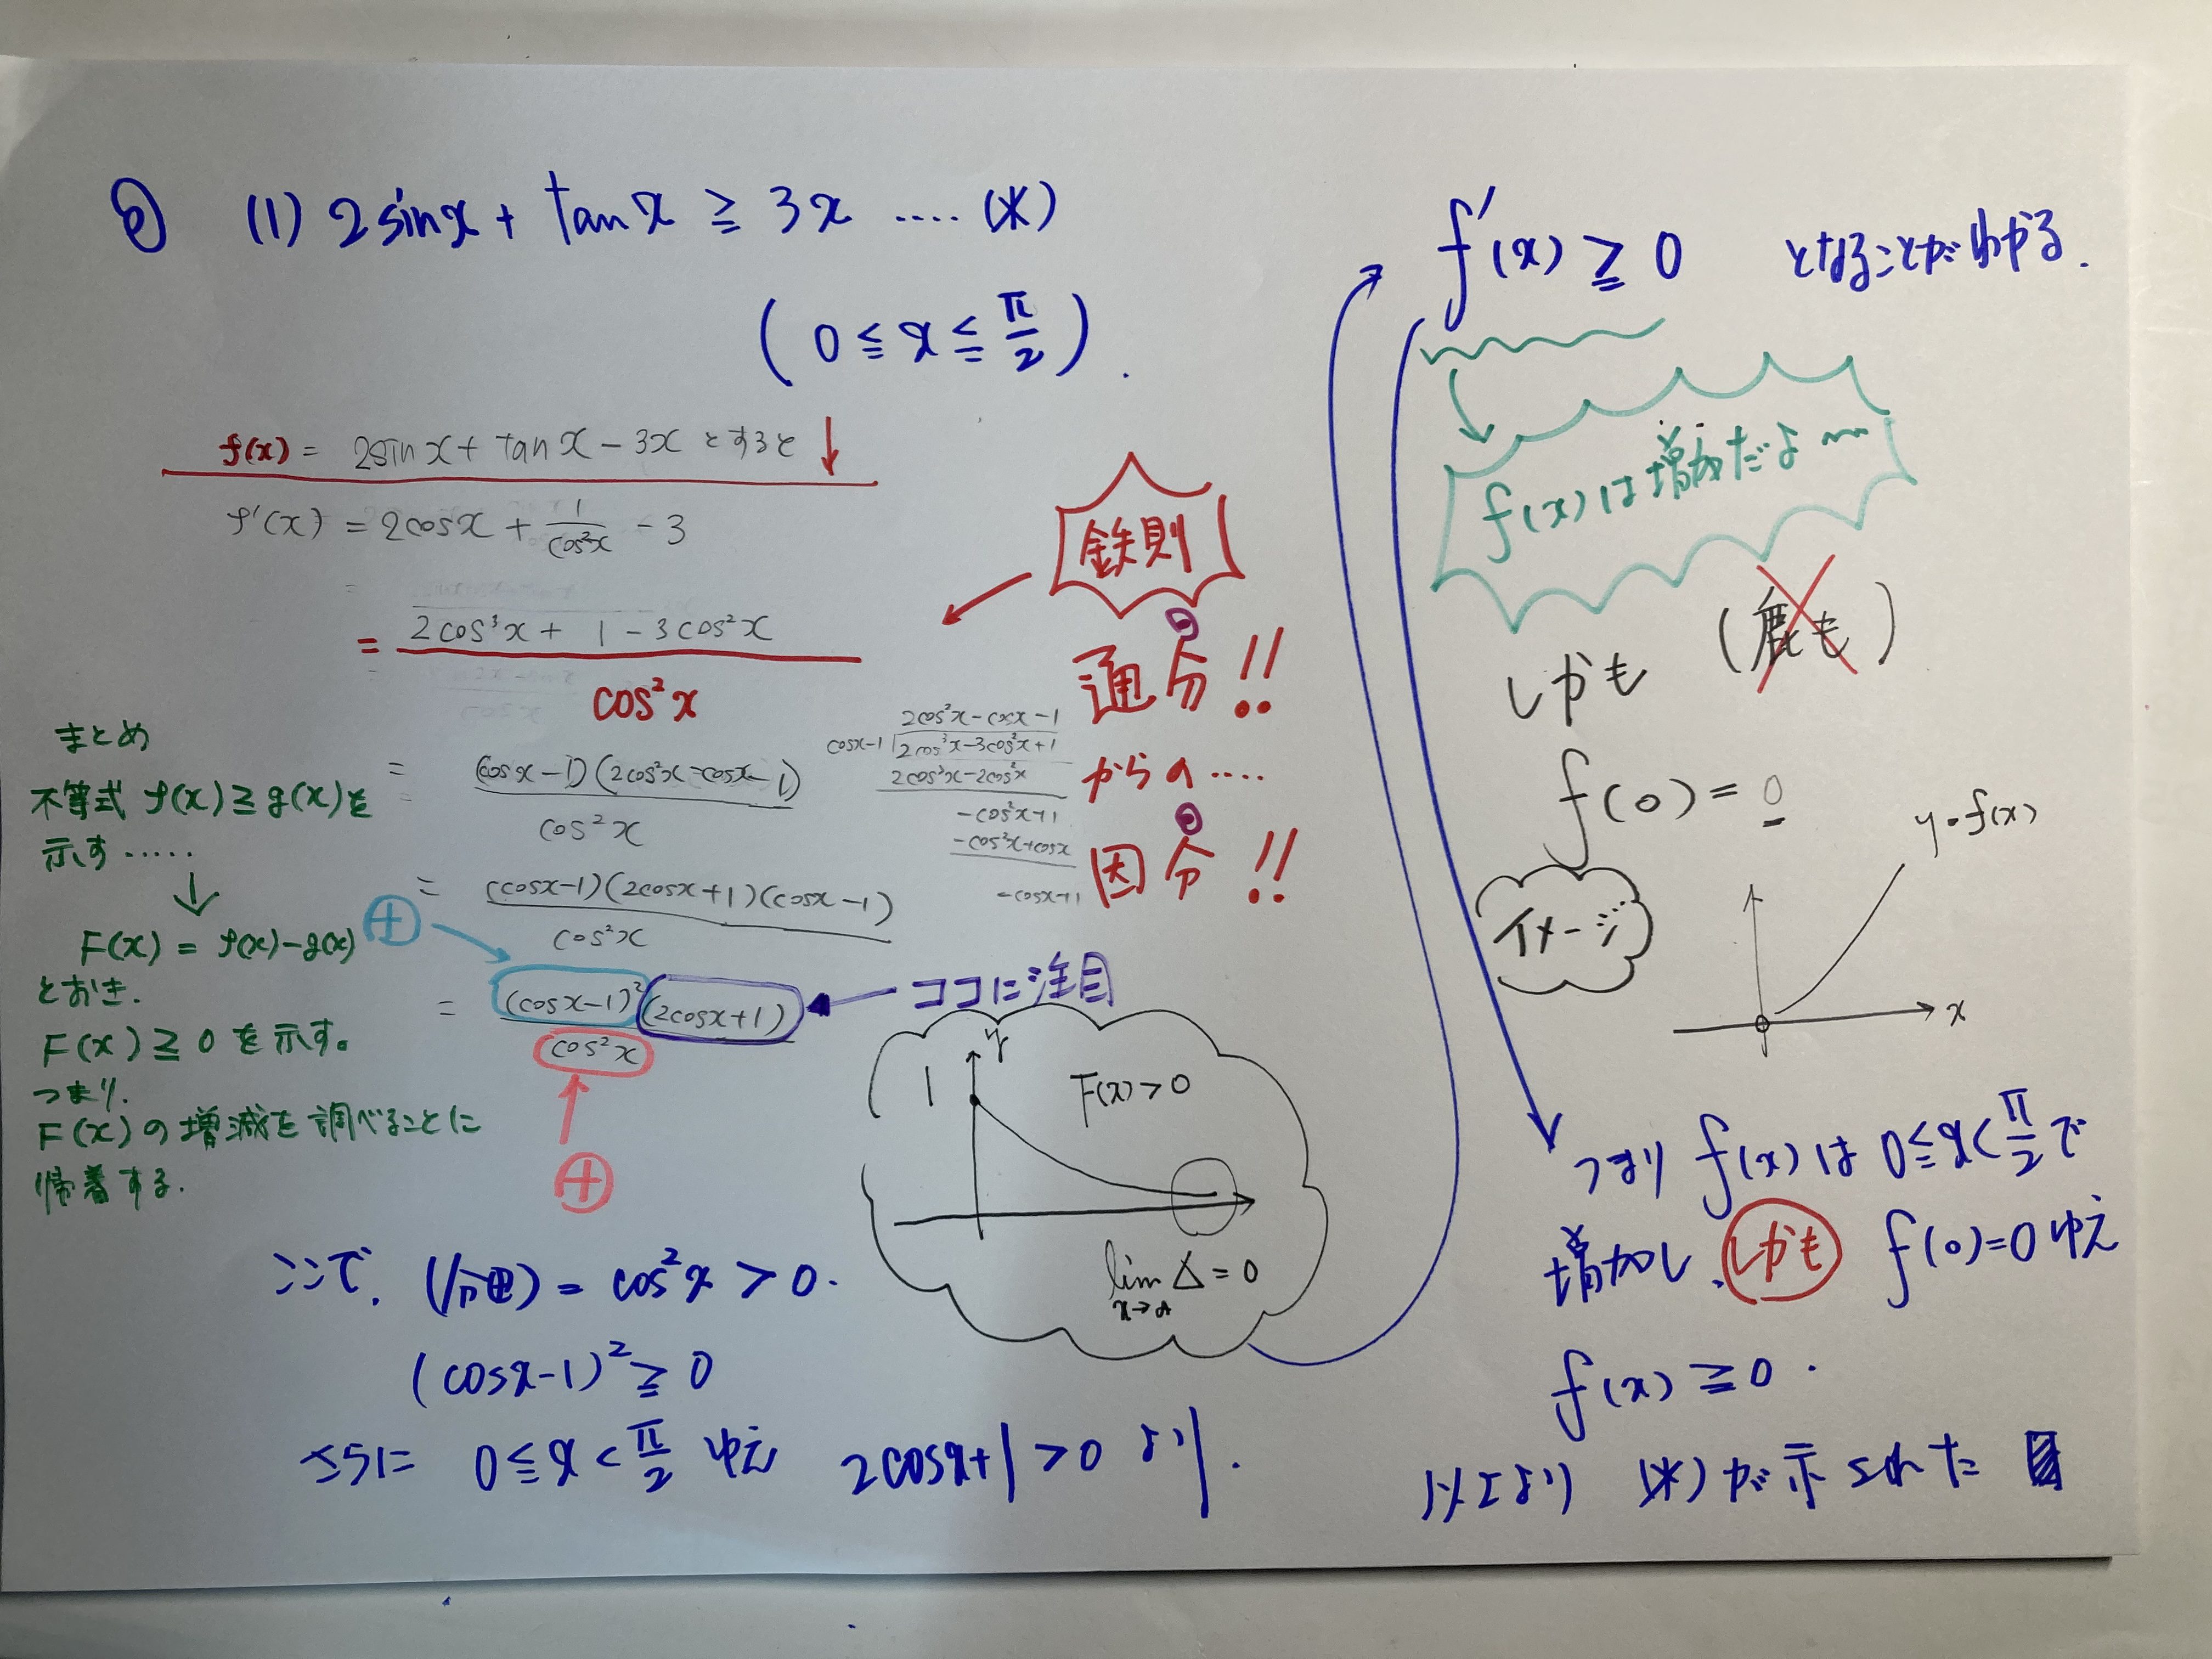 (1) 2sinx + tanx ≧ 3x ···· (*)
(0 ≦ x ≦ π/2).
f(x) = 2sinx + tanx − 3x とすると
f'(x) = 2cosx + 1/cos²x − 3
= (2cos³x + 1 − 3cos²x)/cos²x
= (cosx−1)(2cos²x−cosx−1)/cos²x
= (cosx−1)(2cosx+1)(cosx−1)/cos²x
= (cosx−1)²(2cosx+1)/cos²x
⊕
⊕
ココに注目
鉄則
通分!!
からの····
因分!!
2cos²x−cosx−1
cosx−1 2cos³x−3cos²x+1
2cos³x−2cos²x
−cos²x+1
−cos²x+cosx
−cosx+1
まとめ
不等式 f(x)≧g(x)を
示す·····
↓
F(x) = f(x)−g(x)
とおき.
F(x)≧0を示す。
つまり.
F(x)の増減を調べることに
帰着する.
y
1
F(x)>0
lim Δ = 0
x→α
ここで, (分母) = cos²x > 0.
(cosx−1)² ≧ 0
さらに 0≦x<π/2 ゆえ 2cosx+1>0 より.
f'(x) ≧ 0 となることがわかる.
f(x)は増加だよ〜
しかも (鹿も)
f(0) = 0
イメージ
y=f(x)
x
つまり f(x)は 0≦x<π/2で
増加し、しかも f(0)=0ゆえ
f(x) ≧ 0.
以上より (*)が示された